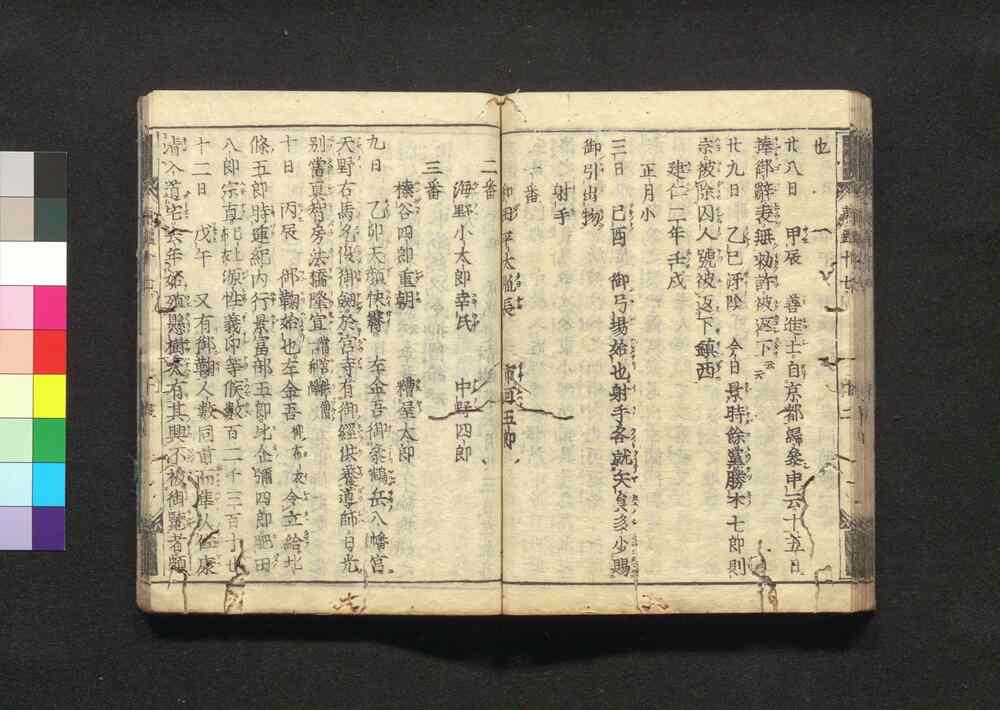 也
廿八日　甲辰　善進士自京都歸參申云十五日
捧御辞表無勅許被返下云云
廿九日　乙巳　陰　今日景時餘黨勝木七郎則
宗被除囚人號被返下鎮西
建仁二年壬戌
正月小
三日　己酉　御弓場始也射手各就矢員多少賜
御引出物
射手
一番
和田平太胤長　五郎
二番
海野小太郎幸氏　中野四郎
三番
榛谷四郎重朝　糟屋太郎
九日　乙卯　天顔快霽　左金吾御參鶴岳八幡宮
天野右馬允役御劔於宮寺有御經供養導師
別當真智房法橋隆宣
十日　丙辰　御鞠始也左金吾布衣令立給北
條五郎時連紀内行景冨部五郎比企弥四郎肥田
八郎　源性義印等候数百二十三百
十二日　戊午　又有御鞠人數同前
入道宅去年　懸樹　有其興不被御覽者